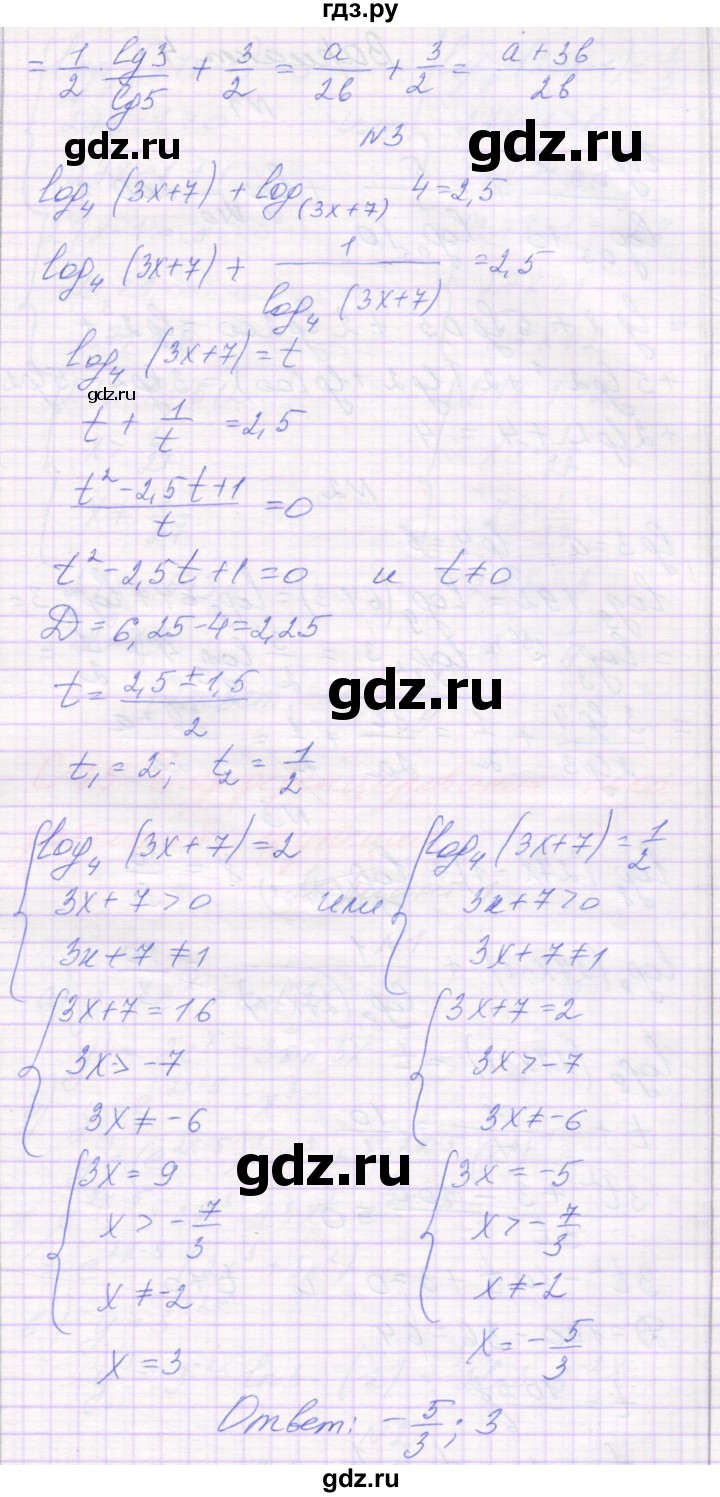 гдз.ру
= 1/2 · lg3/lg5 + 3/2 = a/2b + 3/2 = (a+3b)/2b
gdz.ru
gdz.ru
N3
log₄ (3x+7) + log₍₃ₓ₊₇₎ 4 = 2,5
log₄ (3x+7) + 1/(log₄ (3x+7)) = 2,5
log₄ (3x+7) = t
gdz.ru
t + 1/t = 2,5
(t² - 2,5t + 1)/t = 0
t² - 2,5t + 1 = 0 и t ≠ 0
D = 6,25 - 4 = 2,25
gdz.ru
t = (2,5 ± 1,5)/2
t₁ = 2; t₂ = 1/2
log₄ (3x+7) = 2 log₄ (3x+7) = 1/2
3x+7 > 0 или 3x+7 > 0
3x+7 ≠ 1 3x+7 ≠ 1
3x+7 = 16 3x+7 = 2
3x > -7 3x > -7
3x ≠ -6 3x ≠ -6
gdz.ru
3x = 9 3x = -5
x > -7/3 x > -7/3
x ≠ -2 x ≠ -2
x = 3 x = -5/3
Ответ: -5/3; 3
gdz.ru
gdz.ru